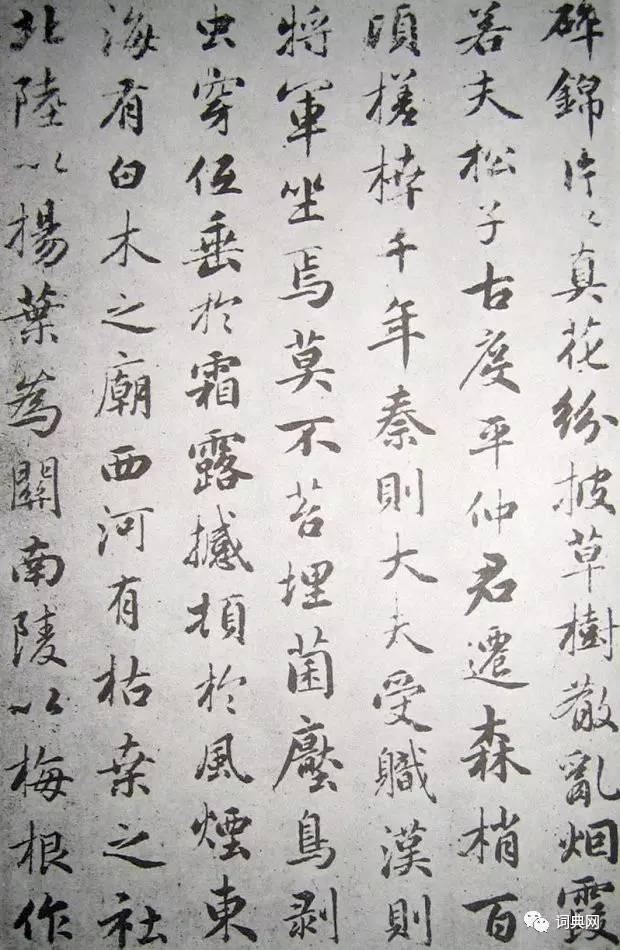 碎錦片々真花紛披草樹散亂烟霞
若夫松子古度平仲君遷森梢百
頃槎枿千年秦則大夫受職漢則
將軍坐焉莫不苔埋菌壓鳥剥
虫穿低垂於霜露撼頓於風煙東
海有白木之廟西河有枯桒之社
北陸以楊葉為關南陵以梅根作
词典网